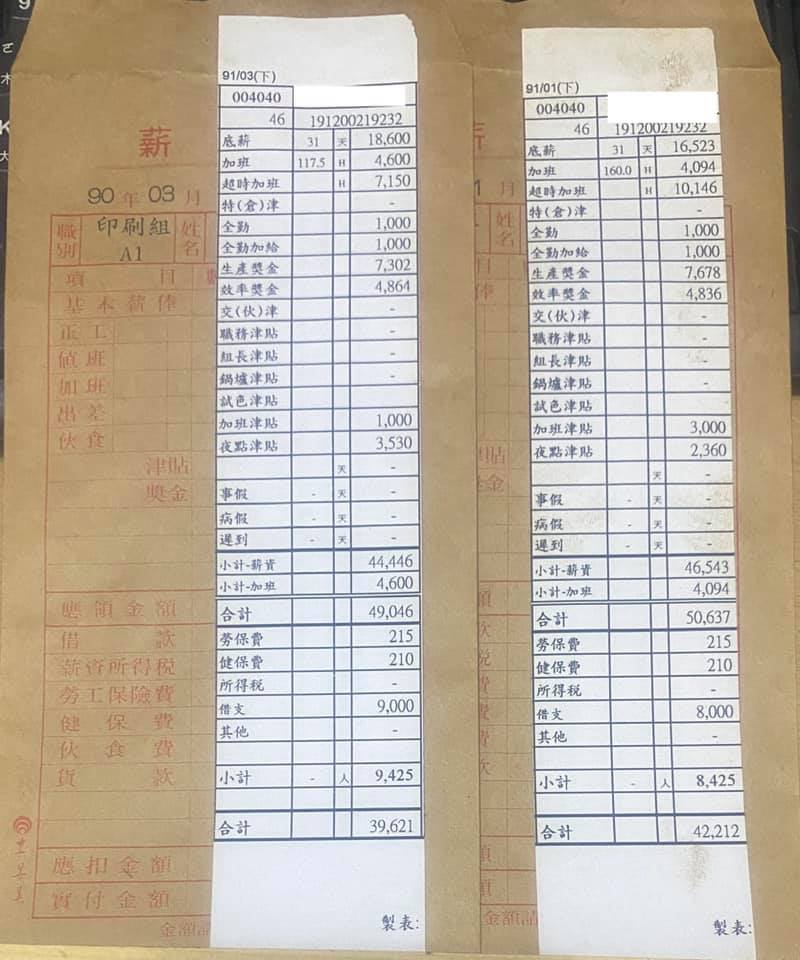 薪
90 年 03 月
職別 印刷組 A1 姓名
項 目
基本薪俸
正工
值班
加班
出差
伙食
津貼
獎金
應領金額
借款
薪資所得稅
勞工保險費
健保費
伙食費
貨款
應扣金額
實付金額
91/03(下)
004040
46 191200219232
底薪 31 天 18,600
加班 117.5 H 4,600
超時加班 H 7,150
特(倉)津 -
全勤 1,000
全勤加給 1,000
生產獎金 7,302
效率獎金 4,864
交(伙)津 -
職務津貼 -
組長津貼 -
鍋爐津貼 -
試色津貼 -
加班津貼 1,000
夜點津貼 3,530
天 -
事假 - 天 -
病假 - 天 -
遲到 - 天 -
小計-薪資 44,446
小計-加班 4,600
合計 49,046
勞保費 215
健保費 210
所得稅 -
借支 9,000
其他 -
小計 - 人 9,425
合計 39,621
製表:
月
姓名
91/01(下)
004040
46 191200219232
底薪 31 天 16,523
加班 160.0 H 4,094
超時加班 H 10,146
特(倉)津 -
全勤 1,000
全勤加給 1,000
生產獎金 7,678
效率獎金 4,836
交(伙)津 -
職務津貼 -
組長津貼 -
鍋爐津貼 -
試色津貼
加班津貼 3,000
夜點津貼 2,360
天 -
事假 - 天 -
病假 - 天 -
遲到 - 天 -
小計-薪資 46,543
小計-加班 4,094
合計 50,637
勞保費 215
健保費 210
所得稅 -
借支 8,000
其他 -
小計 - 人 8,425
合計 42,212
製表: